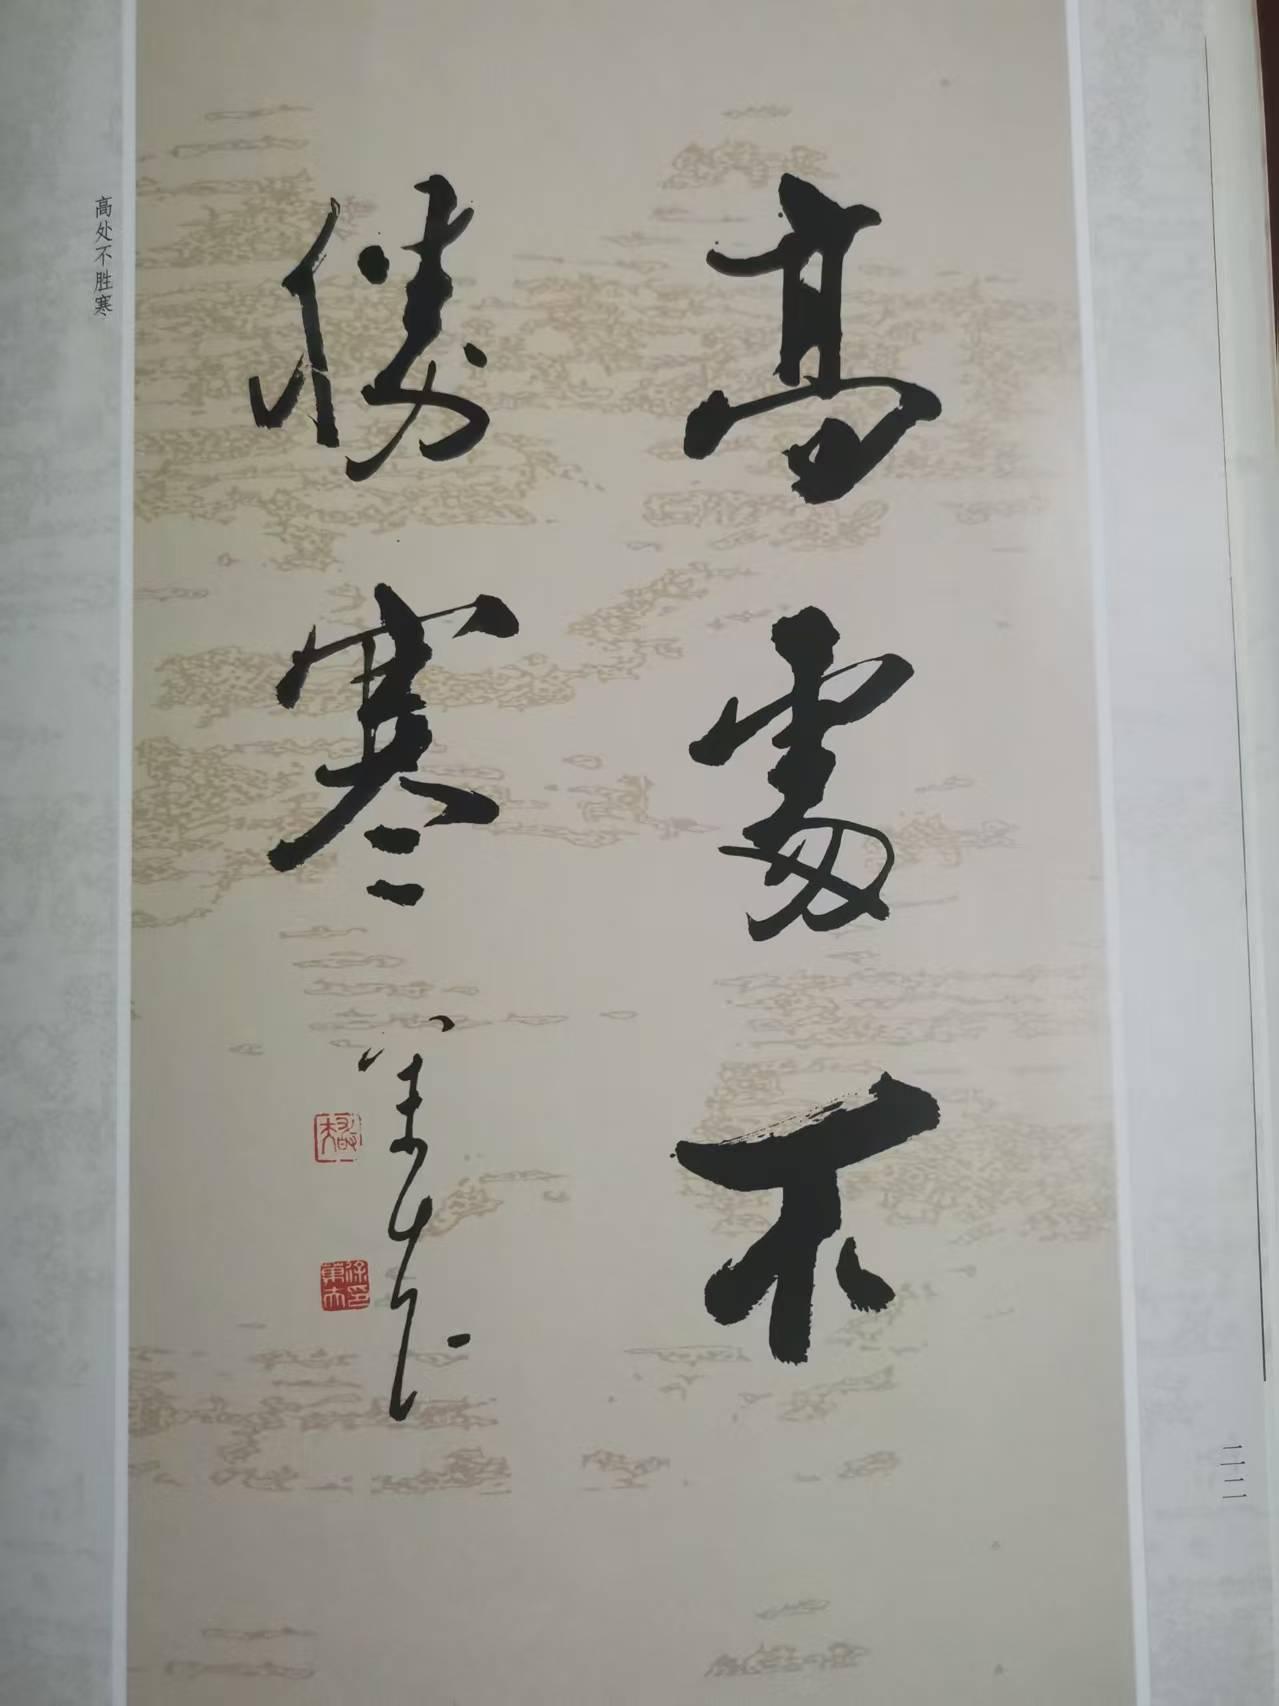 高處不
勝寒
高处不胜寒
二一二